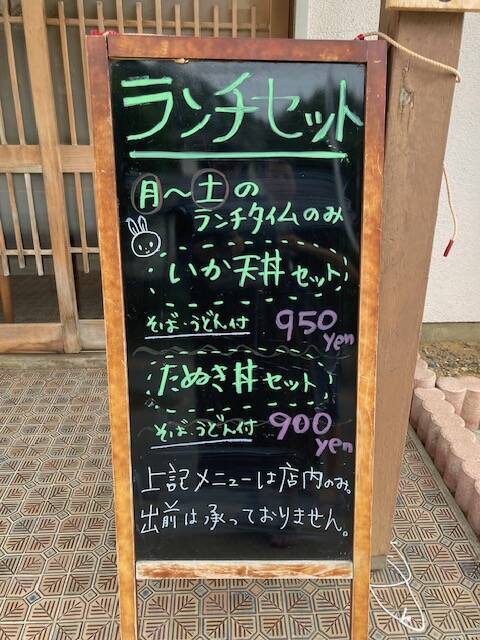 ランチセット
月〜土の
ランチタイムのみ
いか天丼セット
そば・うどん付 950yen
たぬき丼セット
そば・うどん付 900yen
上記メニューは店内のみ。
出前は承っておりません。